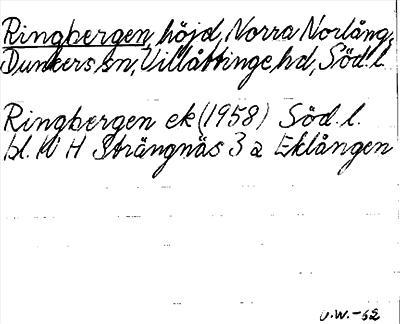 Ringbergen, höjd, Norra Norlång,
Dunkers sn, Villåttinge hd, Söd. l.
Ringbergen ek (1958) Söd. l.
bl. 10 H Strängnäs 3 a Eklången
U.W.-62